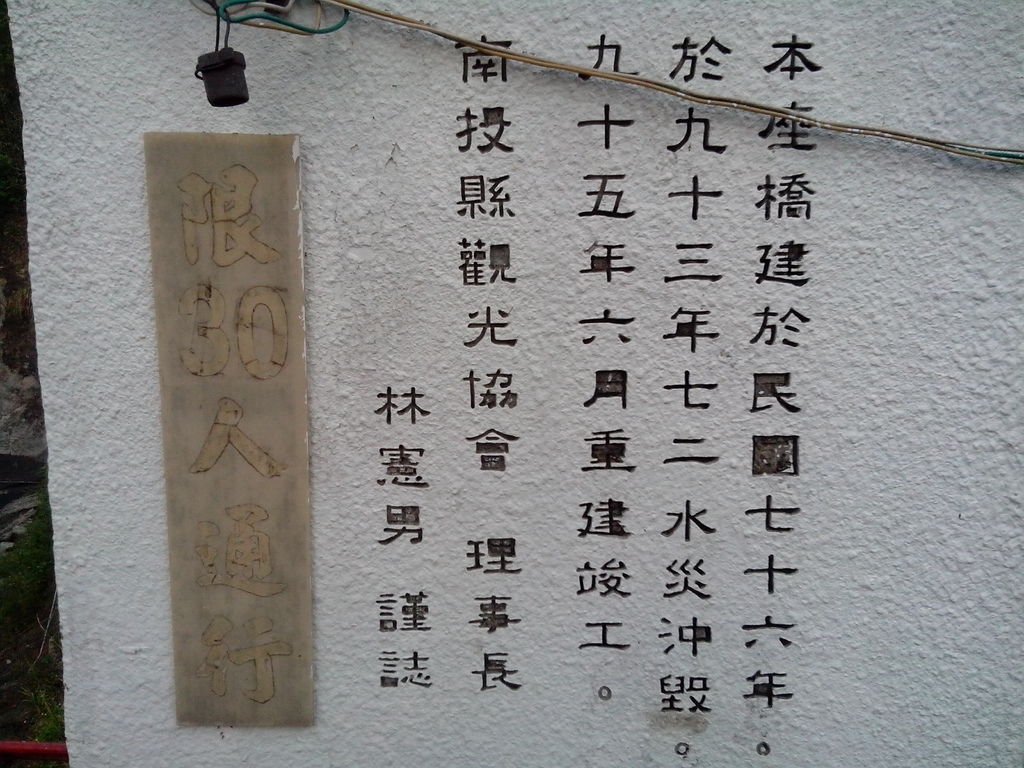 本座橋建於民國七十六年。
於九十三年七二水災沖毀。
九十五年六月重建竣工。
南投縣觀光協會 理事長
林憲男 謹誌
限30人通行